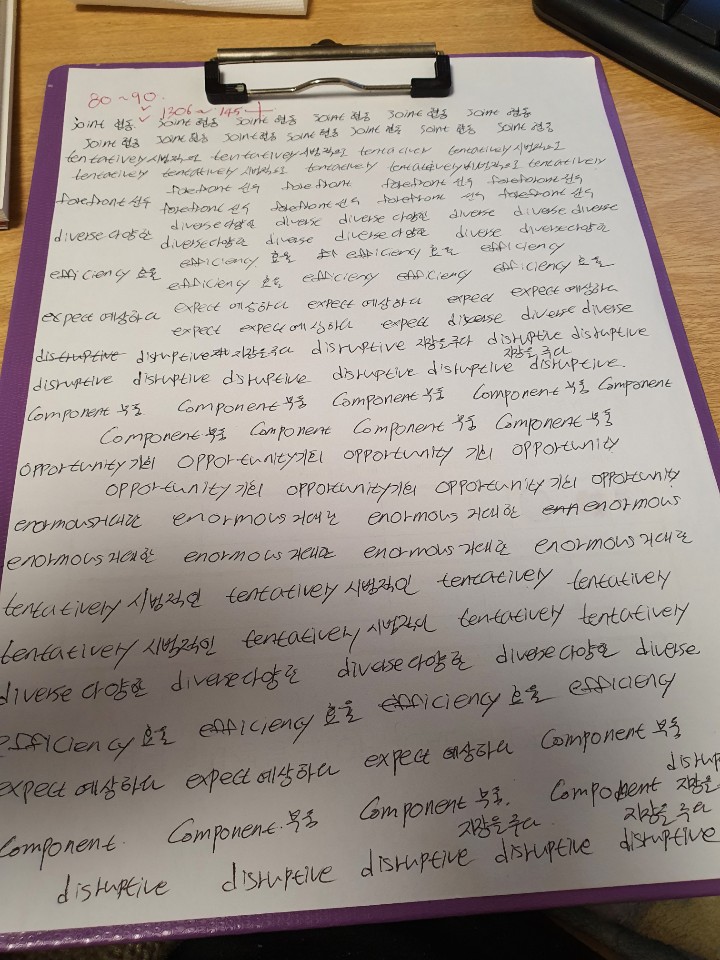 80~90.
1306~145
joint 협동 joint 협동 joint 협동 joint 협동 joint 협동 joint 협동
joint 협동 joint 협동 joint 협동 joint 협동 joint 협동 joint 협동 joint 협동
tentatively 시범적으로 tentatively 시범적으로 tentatively tentatively 시범적으로
tentatively tentatively 시범적으로 tentatively tentatively 시범적으로 tentatively
forefront 선두 forefront forefront 선두 forefront 선두
forefront 선두 forefront 선두 forefront 선두 forefront 선두 forefront 선두
diverse 다양한 diverse diverse 다양한 diverse diverse diverse
diverse 다양한 diverse 다양한 diverse diverse 다양한 diverse diverse 다양한
efficiency 효율 efficiency 효율 efficiency
efficiency 효율 efficiency 효율 efficiency efficiency efficiency 효율
expect 예상하다 expect 예상하다 expect 예상하다 expect expect 예상하다
expect expect 예상하다 expect diverse diverse diverse
disruptive disruptive 지장을 주다 disruptive 지장을 주다 disruptive disruptive
지장을 주다
disruptive disruptive disruptive disruptive disruptive disruptive.
Component 부품 Component 부품 Component 부품 Component 부품 Component
Component 부품 Component Component 부품 Component 부품
opportunity 기회 opportunity 기회 opportunity 기회 opportunity
opportunity 기회 opportunity 기회 opportunity 기회 opportunity
enormous 거대한 enormous 거대한 enormous 거대한 enormous
enormous 거대한 enormous 거대한 enormous 거대한 enormous 거대한
tentatively 시범적인 tentatively 시범적인 tentatively tentatively
tentatively 시범적인 tentatively 시범적인 tentatively tentatively
diverse 다양한 diverse 다양한 diverse 다양한 diverse 다양한 diverse
efficiency 효율 efficiency 효율 efficiency 효율 efficiency
expect 예상하다 expect 예상하다 expect 예상하다 Component 부품
Component. Component. 부품 Component 부품. Component
지장을 주다. 지장을 주다
disruptive disruptive disruptive disruptive disruptive